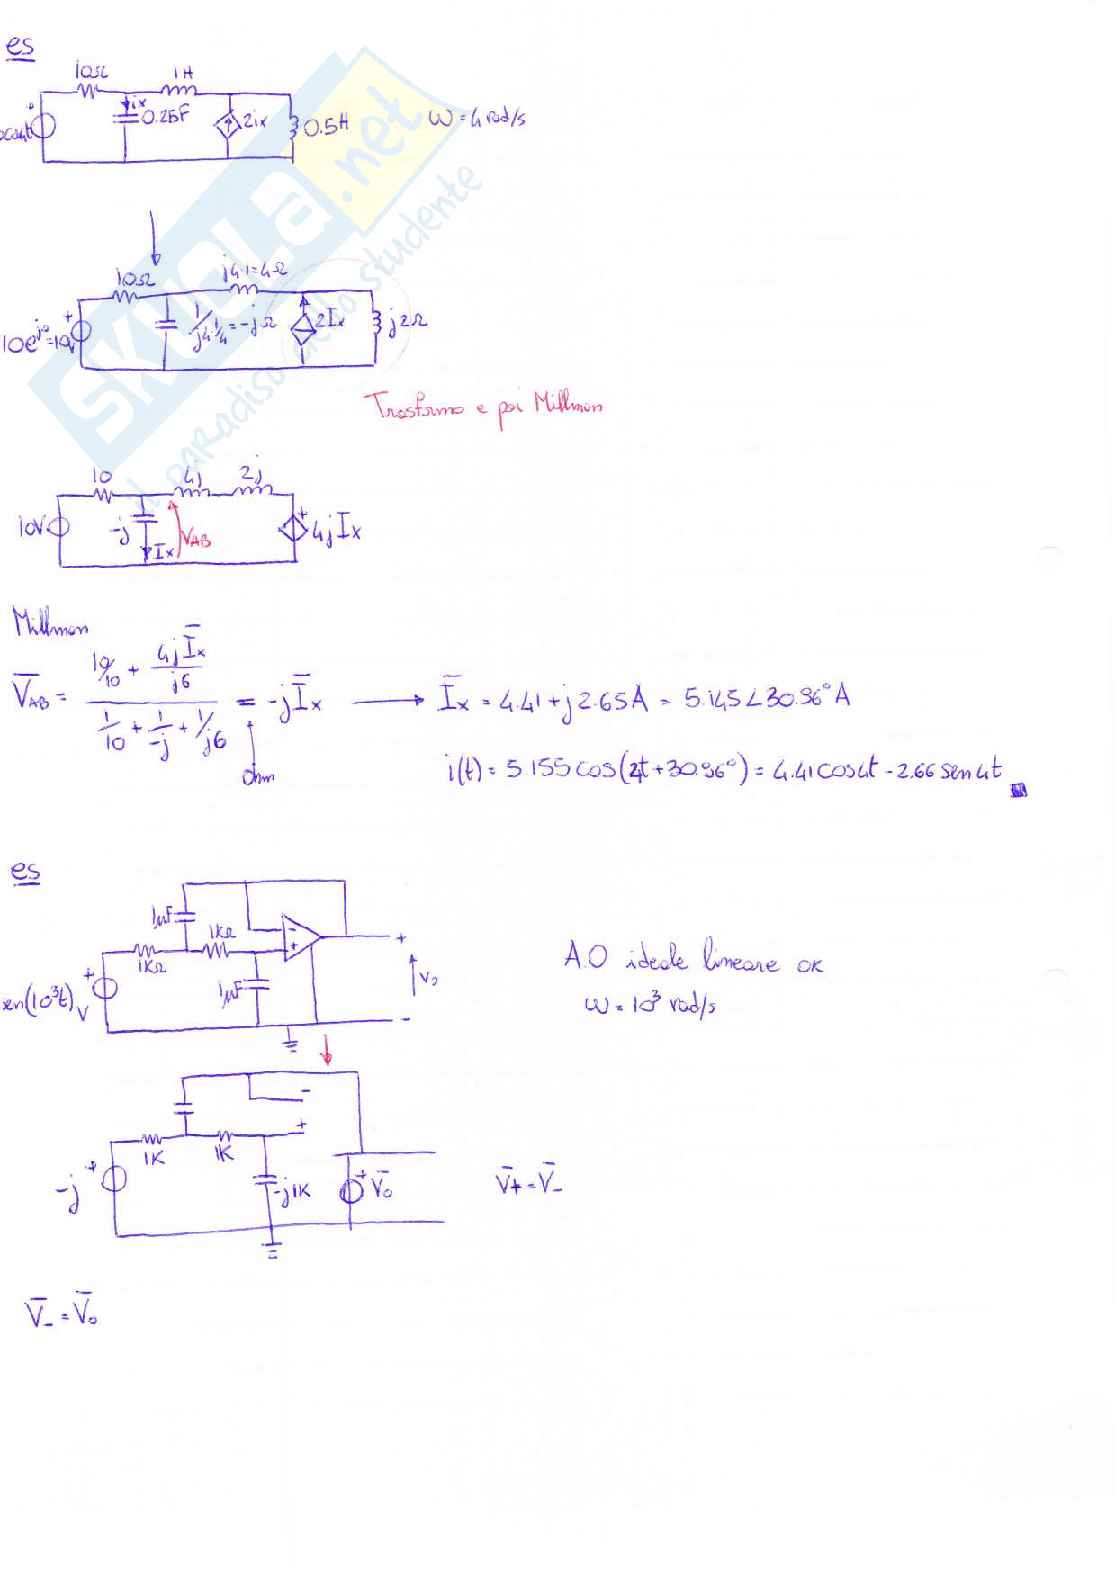 es
10Ω 1H
ix
0.25F 2ix 0.5H ω = 4 rad/s
10Ω j4·1=4Ω
10e^j0=10V 1/j4·1/4 = -jΩ 2Ix j2Ω
Trasformo e poi Millman
10 4j 2j
10V -j Ix VAB 4jIx
Millman
V̄AB = (10/10 + 4jĪx/j6) / (1/10 + 1/-j + 1/j6) = -jĪx → Īx = 4.41 + j2.65A = 5.145∠30.96°A
Ohm
i(t) = 5.155cos(4t+30.96°) = 4.41cos4t - 2.66sen4t
es
1μF 1KΩ
1KΩ
1μF
sen(10³t) V
Vo
A.O ideale lineare ok
ω = 10³ rad/s
1K 1K
-j -j1K V̄o V̄+ = V̄-
V̄- = V̄o
SKUOLA.net
il paradiso dello studente